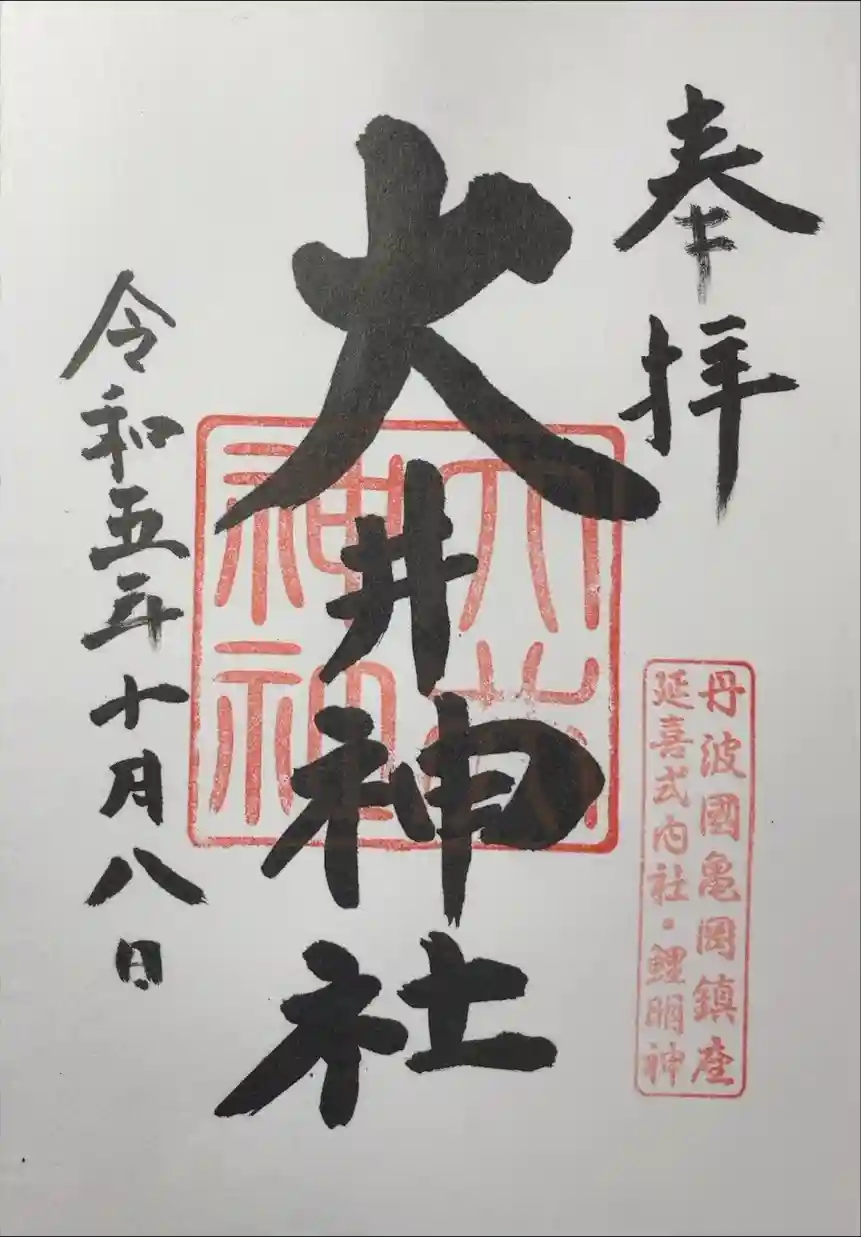 奉拝
丹波國亀岡鎮座
延喜式内社・鯉明神
大井神社
大井
神社
令和五年十月八日